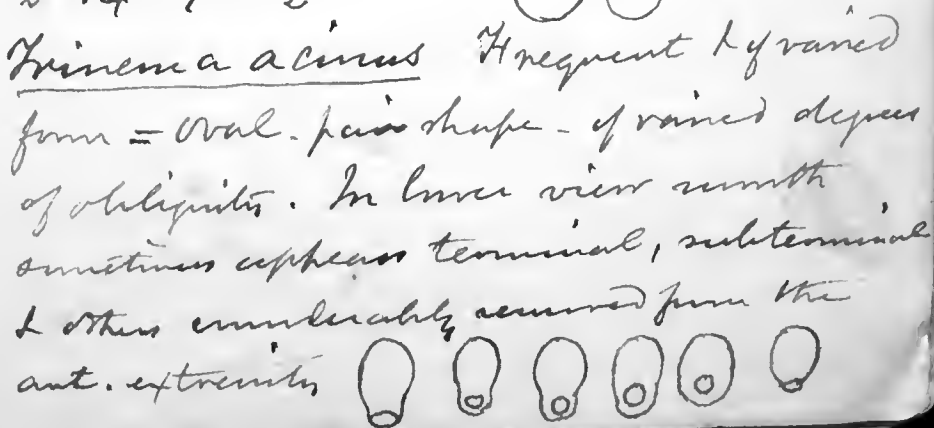 Trinema acinus Frequent & of varied
form = oval - pair shape - of varied degrees
of obliquity. In lower view mouth
sometimes appears terminal, subterminal
& others considerably removed from the
ant. extremity